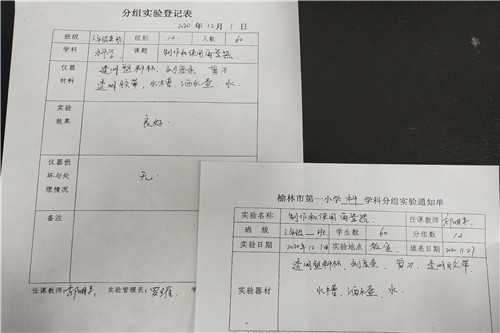 分组实验登记表
2020年12月1日
班级 三年级 组别 12 人数 60
学科 科学 课题 制作和使用雨量器
仪器材料 透明塑料杯、刻度条、剪刀
透明胶带、水槽、洒水壶、水
实验效果 良好.
仪器损坏与处理情况 无.
备注
任课教师: 实验管理员:
榆林市第一小学 科 学科分组实验通知单
实验名称 制作和使用雨量器 任课教师
班级 三年级一班 学生数 60 分组数 12
实验日期 2020年12.1 实验地点 教室 填表日期 2020.11.27
实验器材 透明塑料杯、刻度条、剪刀、透明胶带
水槽、洒水壶、水.